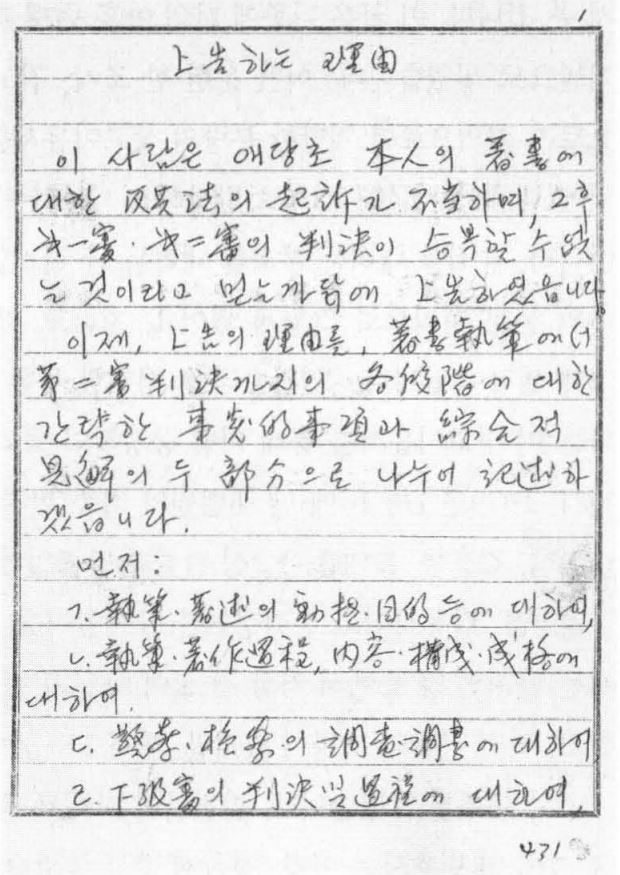 上告하는 理由
이 사람은 애당초 本人의 著書에
대한 反共法의 起訴가 不当하며, 그후
第一審·第二審의 判決이 승복할 수 없
는 것이라고 믿는 까닭에 上告하였읍니다.
이제, 上告의 理由를, 著書執筆에서
第二審 判決까지의 各段階에 대한
간략한 事実的事項과 綜合적
見解의 두 部分으로 나누어 記述하
겠읍니다.
먼저:
ㄱ. 執筆·著述의 動機·目的 등에 대하여,
ㄴ. 執筆·著作過程, 内容·構成·性格에
대하여.
ㄷ. 警察·検察의 調査調書에 대하여
ㄹ. 下級審의 判決 및 過程에 대하여,
431